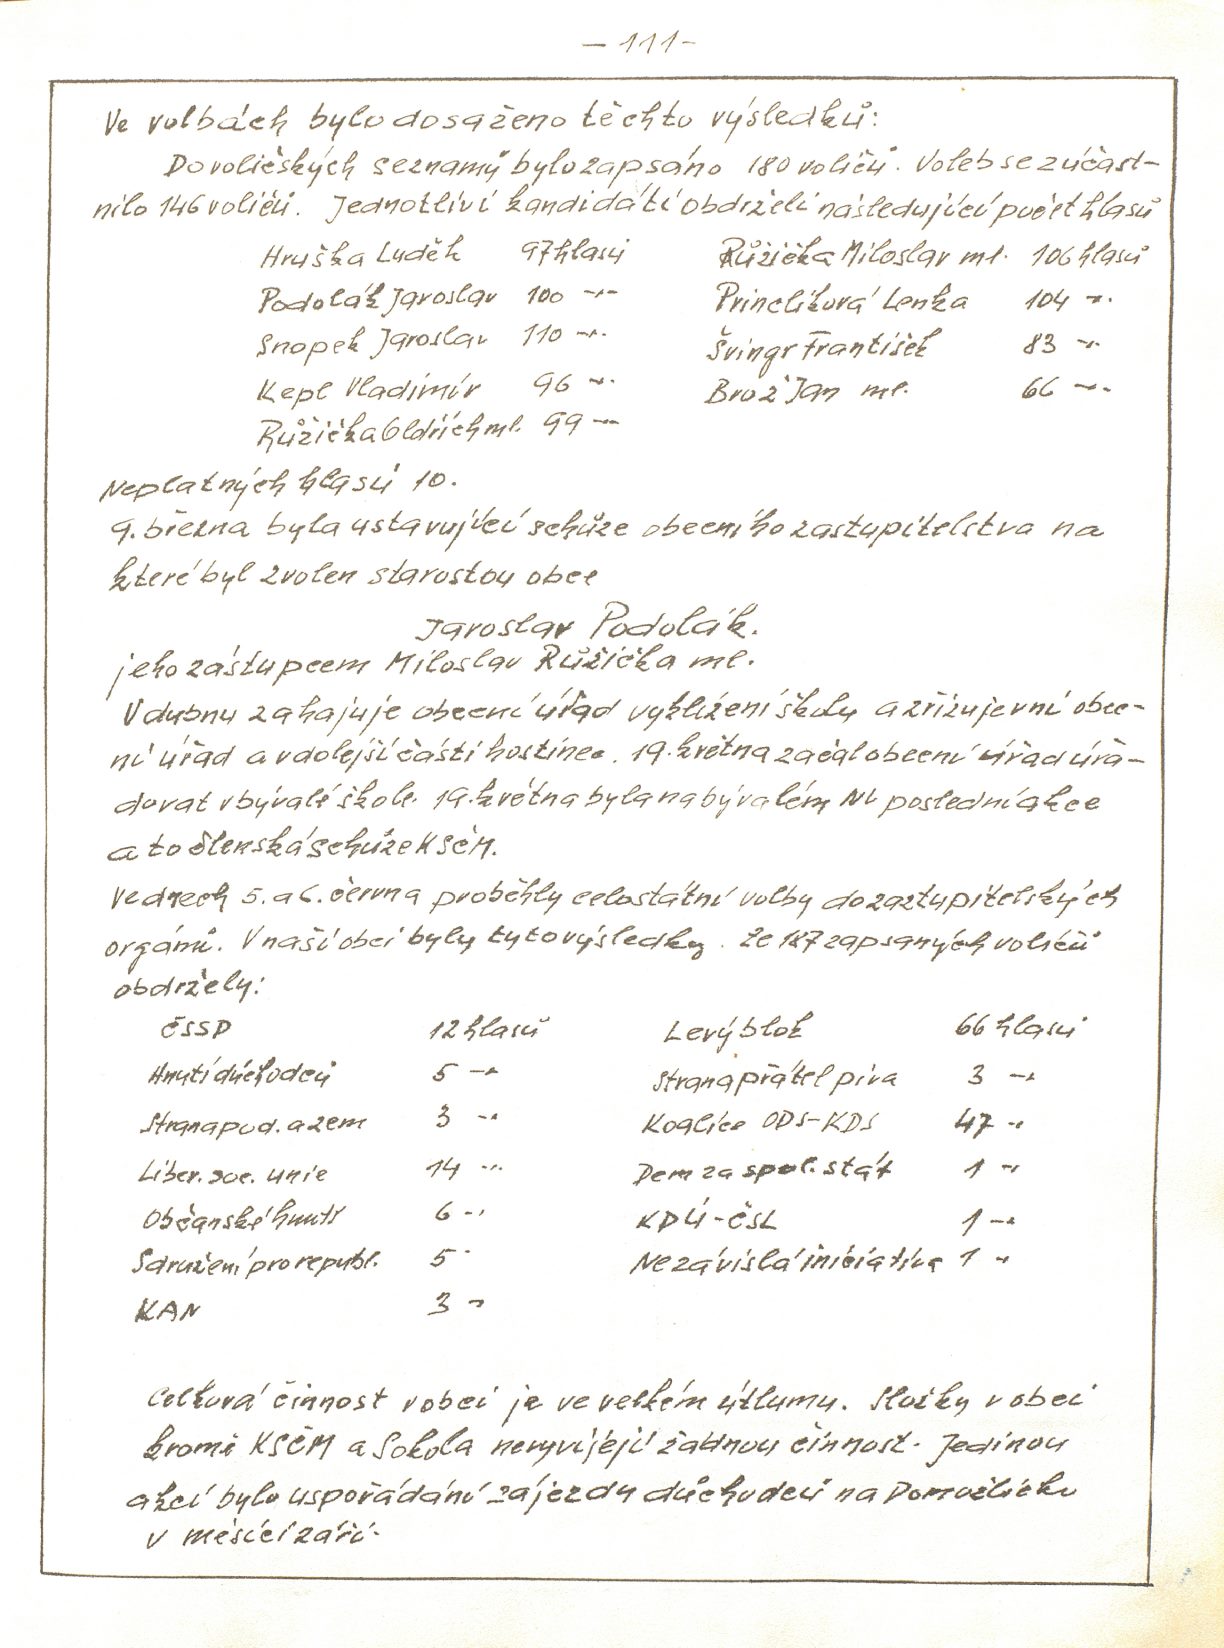 – 111 –
Ve volbách bylo dosaženo těchto výsledků:
Do voličských seznamů bylo zapsáno 180 voličů. Voleb se zúčast-
nilo 146 voličů. Jednotliví kandidáti obdrželi následující počet hlasů
Hruška Luděk 97 hlasů Růžička Miloslav ml. 106 hlasů
Podolák Jaroslav 100 -"- Princlíková Lenka 104 -"-
Snopek Jaroslav 110 -"- Švingr František 83 -"-
Kepl Vladimír 96 -"- Brož Jan ml. 66 -"-
Růžička Oldřich ml. 99 -"-
Neplatných hlasů 10.
9. března byla ustavující schůze obecního zastupitelstva na
které byl zvolen starostou obce
Jaroslav Podolák.
jeho zástupcem Miloslav Růžička ml.
V dubnu zahajuje obecní úřad vyklízení školy a zřizuje v ní obec-
ní úřad a v dolejší části hostinec. 19. května začal obecní úřad úřa-
dovat v bývalé škole. 19. května byla na bývalém NV poslední akce
a to členská schůze KSČM.
Ve dnech 5. a 6. června proběhly celostátní volby do zaztupitelských
orgánů. V naší obci byly tyto výsledky. Ze 187 zapsaných voličů
obdržely:
ČSSD 12 hlasů Levý blok 66 hlasů
Hnutí důchodců 5 -"- Strana přátel piva 3 -"-
Strana pod. a zem 3 -"- Koalice ODS-KDS 47 -"-
Liber. soc. unie 14 -"- Dem za spol. stát 1 -"-
Občanské hnutí 6 -"- KDU-ČSL 1 -"-
Sdružení pro republ. 5 - Nezávislá iniciativa 1 -"-
KAN 3 -"-
Celková činnost v obci je ve velkém útlumu. Složky v obci
kromě KSČM a Sokola nevyvíjejí žádnou činnost. Jedinou
akcí bylo uspořádání zájezdu důchodců na Domažlicko
v měsíci září.